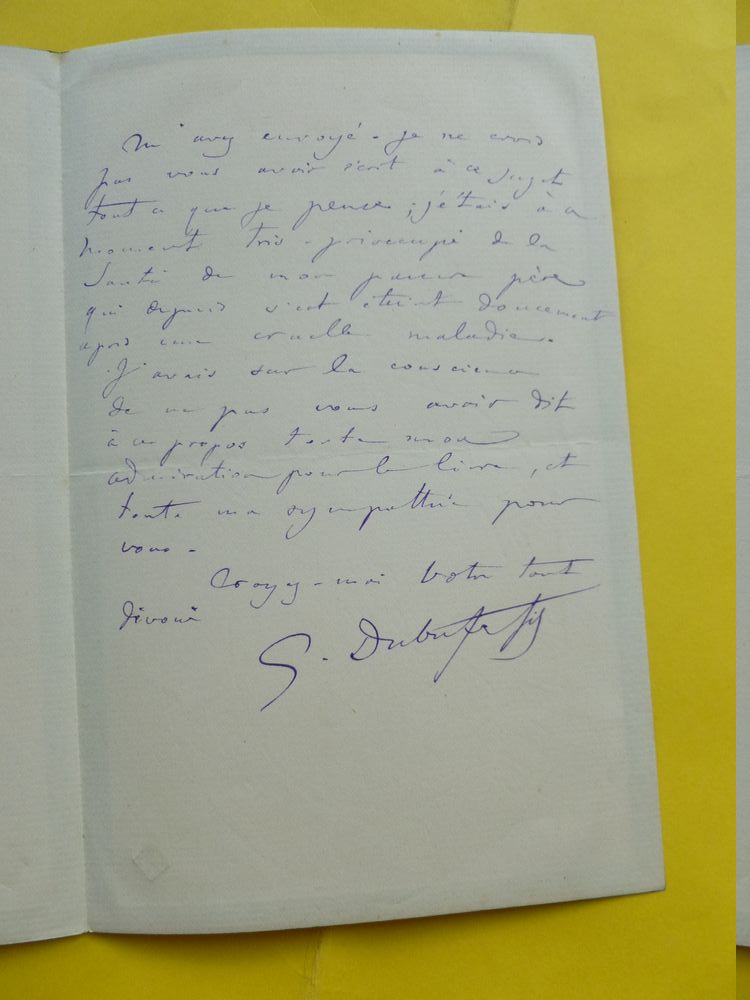 m'avez envoyé - je ne crois
pas vous avoir écrit à ce sujet
tout ce que je pense ; j'étais à ce
moment très-préoccupé de la
Santé de mon pauvre père
qui depuis s'est éteint doucement
après une cruelle maladie.
J'avais sur la conscience
de ne pas vous avoir dit
à ce propos toute mon
admiration pour le livre, et
toute ma sympathie pour
vous -
Croyez-moi votre tout
dévoué
G. Dubufe fils